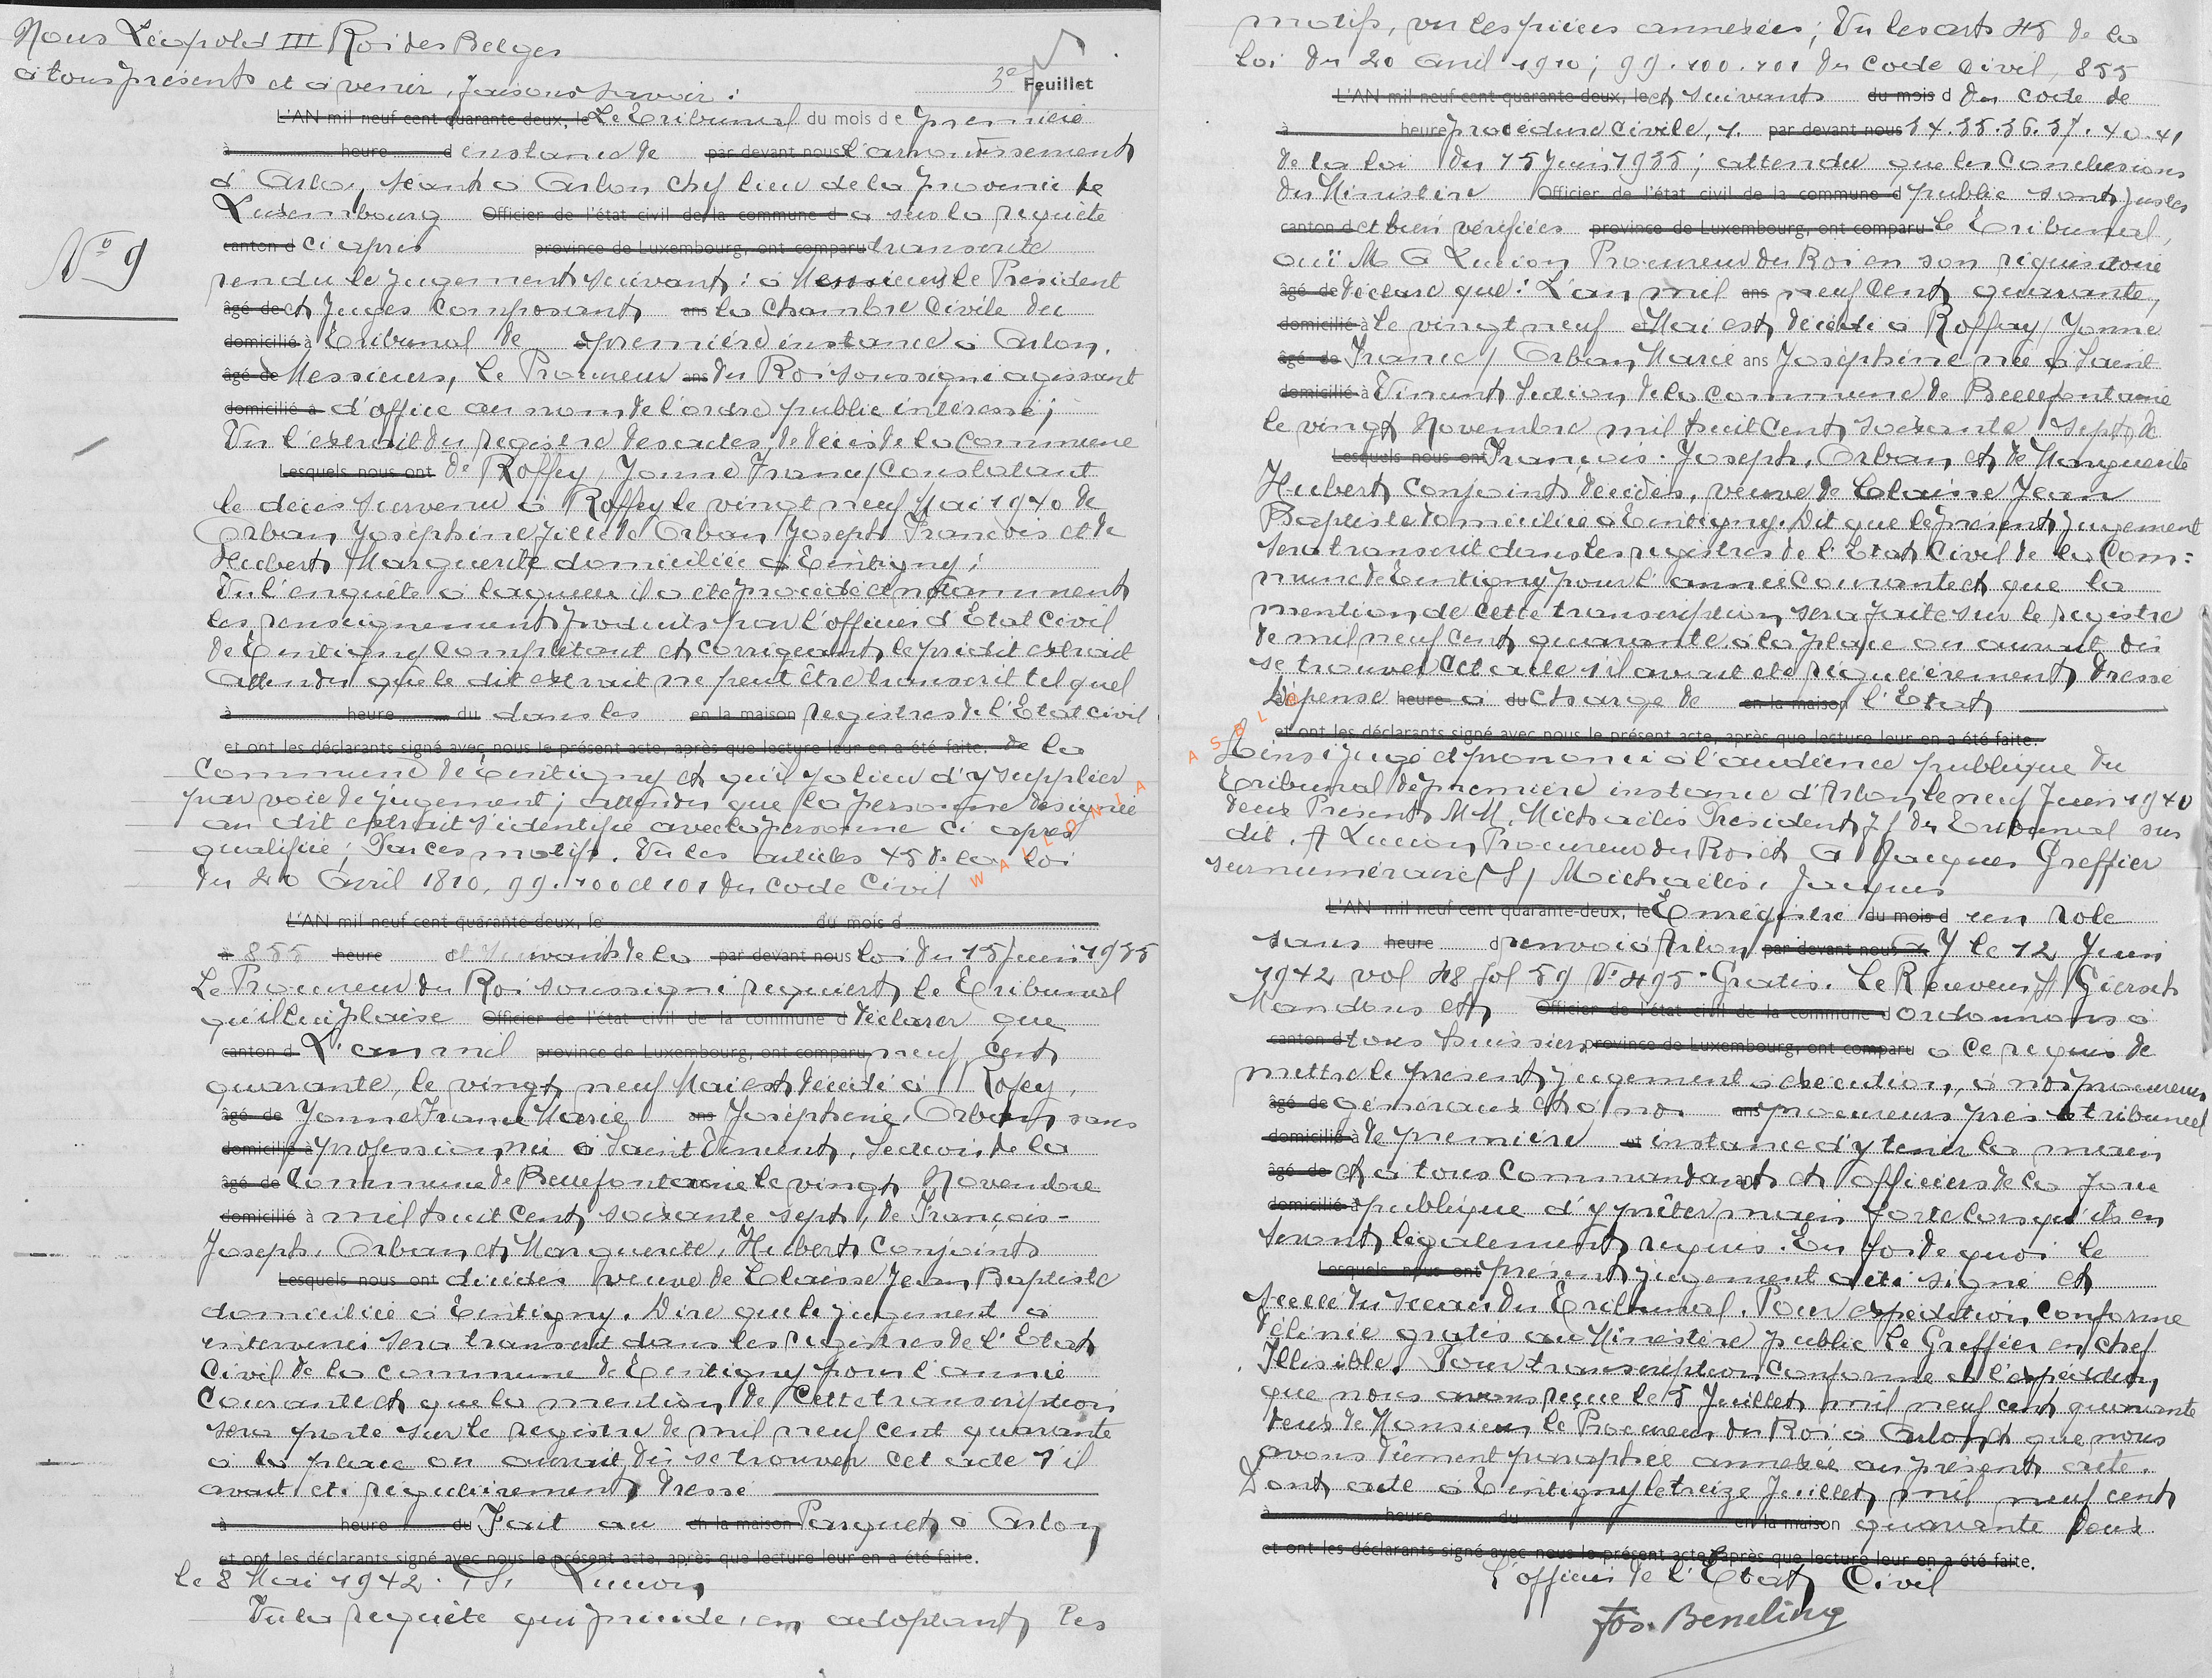 Nous Léopold III Roi des Belges
à tous présents et à venir, faisons savoir :
3e Feuillet
L'AN mil neuf cent quarante deux, le Le Tribunal du mois de première
à heure d instance de par devant nous l'arrondissement
d'Arlon, séant à Arlon chef lieu de la province de
Luxembourg Officier de l'état civil de la commune d a sur la requête
canton d ci après province de Luxembourg, ont comparu transcrite
N° 9
rendu le jugement suivant : à Messieurs le Président
âgé de et Juges composant ans la chambre civile du
domicilié à Tribunal de première instance à Arlon.
âgé de Messieurs, Le Procureur ans du Roi soussigné agissant
domicilié à d'office au nom de l'ordre public intéressé ;
Vu l'extrait du registre des actes de décès de la commune
Lesquels nous ont de Roffey, Yonne France, constatant
le décès survenu à Roffey le vingt neuf Mai 1940 de
Orban Joséphine fille de Orban Joseph François et de
Hubert Marguerite domiciliée à Tintigny ;
Vu l'enquête à laquelle il a été procédé et notamment
les renseignements produits par l'officier d'Etat Civil
de Tintigny complétant et corrigeant le prédit extrait
Attendu que le dit extrait ne peut être transcrit tel quel
à heure du dans les en la maison registres de l'Etat civil
et ont les déclarants signé avec nous le présent acte, après que lecture leur en a été faite. de la
Commune de Tintigny et qu'il y a lieu d'y suppléer
par voie de jugement ; attendu que la personne désignée
au dit extrait s'identifie avec la personne ci après
qualifiée ; Par ces motifs. Vu les articles 45 de la loi
du 20 Avril 1810, 99.100 et 101 du Code Civil
L'AN mil neuf cent quarante-deux, le du mois d
à 855 heure et suivants de la par devant nous loi du 15 Juin 1935
Le Procureur du Roi soussigné requiert le Tribunal
qu'il lui plaise Officier de l'état civil de la commune d déclarer que
canton d L'an mil province de Luxembourg, ont comparu neuf cent
quarante, le vingt neuf Mai est décédé à Rofey,
âgé de Yonne France Marie ans Joséphine, Orban sans
domicilié à profession, née à Saint Vincent, Section de la
âgé de Commune de Bellefontaine le vingt Novembre
domicilié à mil huit cent soixante sept, de François-
Joseph, Orban et Marguerite, Hubert conjoints
Lesquels nous ont décédés veuve de Claisse Jean, Baptiste
domiciliée à Tintigny. Dire que le jugement à
intervenir sera transcrit dans les registres de l'Etat
Civil de la commune de Tintigny pour l'année
courante et que la mention de cette transcription
sera porté sur le registre de mil neuf cent quarante
à la place où aurait dû se trouver cet acte s'il
avait été régulièrement dressé
à heure du Fait au en la maison Parquet à Arlon
et ont les déclarants signé avec nous le présent acte, après que lecture leur en a été faite.
le 8 Mai 1942. (S) Lucion
Vu la requête qui précède, en adoptant les
motifs, vu les pièces annexées ; Vu les arts 45 de la
loi du 20 avril 1910 ; 99.100.101 du Code Civil, 855
L'AN mil neuf cent quarante-deux, le et suivants du mois d du Code de
à heure procédure civile, 1. par devant nous 34.35.36.37.40.41
de la loi du 15 Juin 1935 ; attendu que les conclusions
du Ministère Officier de l'état civil de la commune d public sont justes
canton d et bien vérifiées province de Luxembourg, ont comparu le Tribunal,
ouï M A Lucion Procureur du Roi en son réquisitoire
âgé de déclare que : L'an mil ans neuf cent quarante,
domicilié à le vingt neuf Mai est décédé à Roffay, Yonne
âgé de France, Orban, Marie ans Joséphine née à Saint
domicilié à Vincent section de la commune de Bellefontaine
le vingt Novembre mil huit cent soixante sept, de
Lesquels nous ont François. Joseph, Orban et de Marguerite
Hubert conjoints décédés, veuve de Claisse Jean
Baptiste domiciliée à Tintigny. Dit que le présent jugement
sera transcrit dans les registres de l'Etat Civil de la Com:
mune de Tintigny pour l'année courante et que la
mention de cette transcription sera faite sur le registre
de mil neuf cent quarante à la place où aurait dû
se trouver cet acte s'il avait été régulièrement dressé
Dépense heure à du charge de en la maison l'Etat
et ont les déclarants signé avec nous le présent acte, après que lecture leur en a été faite.
Ainsi jugé et prononcé à l'audience publique du
Tribunal de première instance d'Arlon le neuf Juin 1940
deux Présents MM. Michaëlis Président ff du Tribunal sus
dit. A Lucion Procureur du Roi et A Jacques Greffier
surnuméraire (S) Michaëlis, Jacques
L'AN mil neuf cent quarante-deux, le Enregistré du mois d un rôle
sans heure d renvoi à Arlon par devant nous A J le 12 Juin
1942 vol 48 fol 59 N° 495 - Gratis. Le Receveur (S) Giersch
Mandons et Officier de l'état civil de la commune d ordonnons à
canton d tous huissiers province de Luxembourg, ont comparu à ce requis de
mettre le présent jugement à exécution, à nos procureurs
âgé de généraux et à nos ans procureurs près le tribunal
domicilié à de première et instance d'y tenir la main
âgé de et à tous commandants ans et officiers de la force
domicilié à publique d'y prêter main forte lorsqu'ils en
seront légalement requis. En foi de quoi le
Lesquels nous ont présent jugement a été signé et
scellé du sceau du Tribunal. Pour expédition conforme
délivrée gratis au Ministère public Le Greffier en chef
Illisible. Pour transcription conforme à l'expédition
que nous avons reçue le 5 Juillet mil neuf cent quarante
deux de Monsieur le Procureur du Roi à Arlon et que nous
avons dûment paraphée annexée au présent acte.
Dont acte à Tintigny le treize Juillet mil neuf cent
à heure du en la maison quarante deux
et ont les déclarants signé avec nous le présent acte, après que lecture leur en a été faite.
L'officier de l'Etat Civil
Jos. Benelinq
ASBL WALLONIA